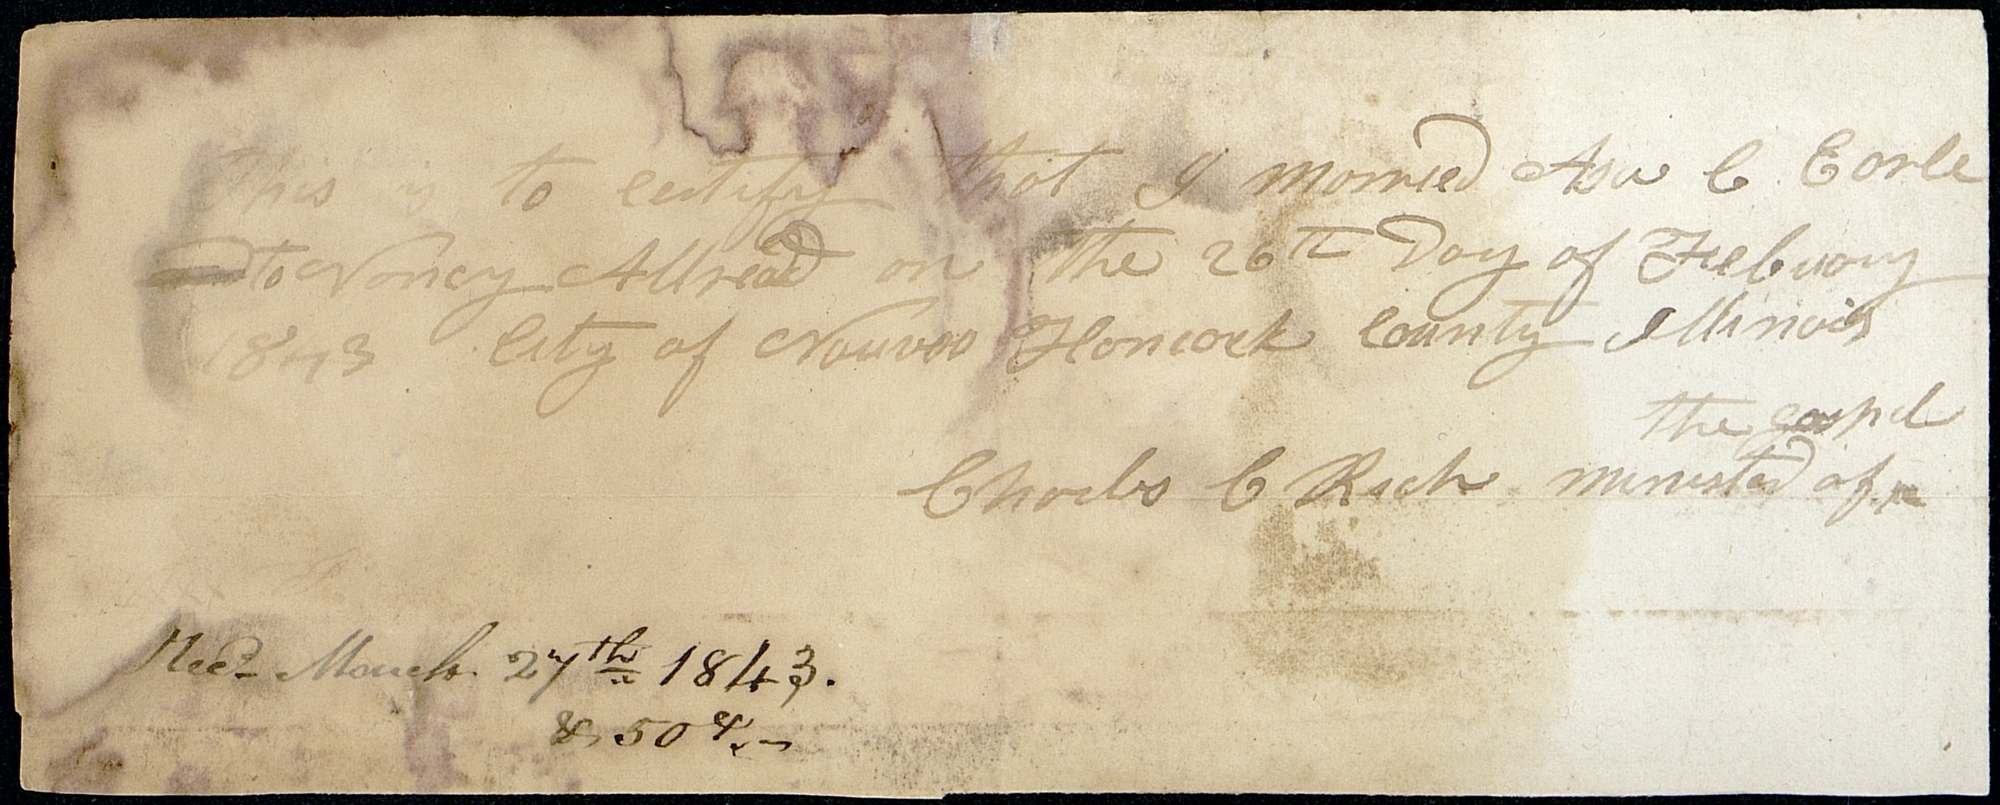 This is to certify that I married Asa C Earle
to Nancy Allread on the 26th Day of Febuary
1843 City of Nauvoo Hancock County Illinois
the gospel
Charles C Rich minister of
Recd March 27th 1843.
& 50